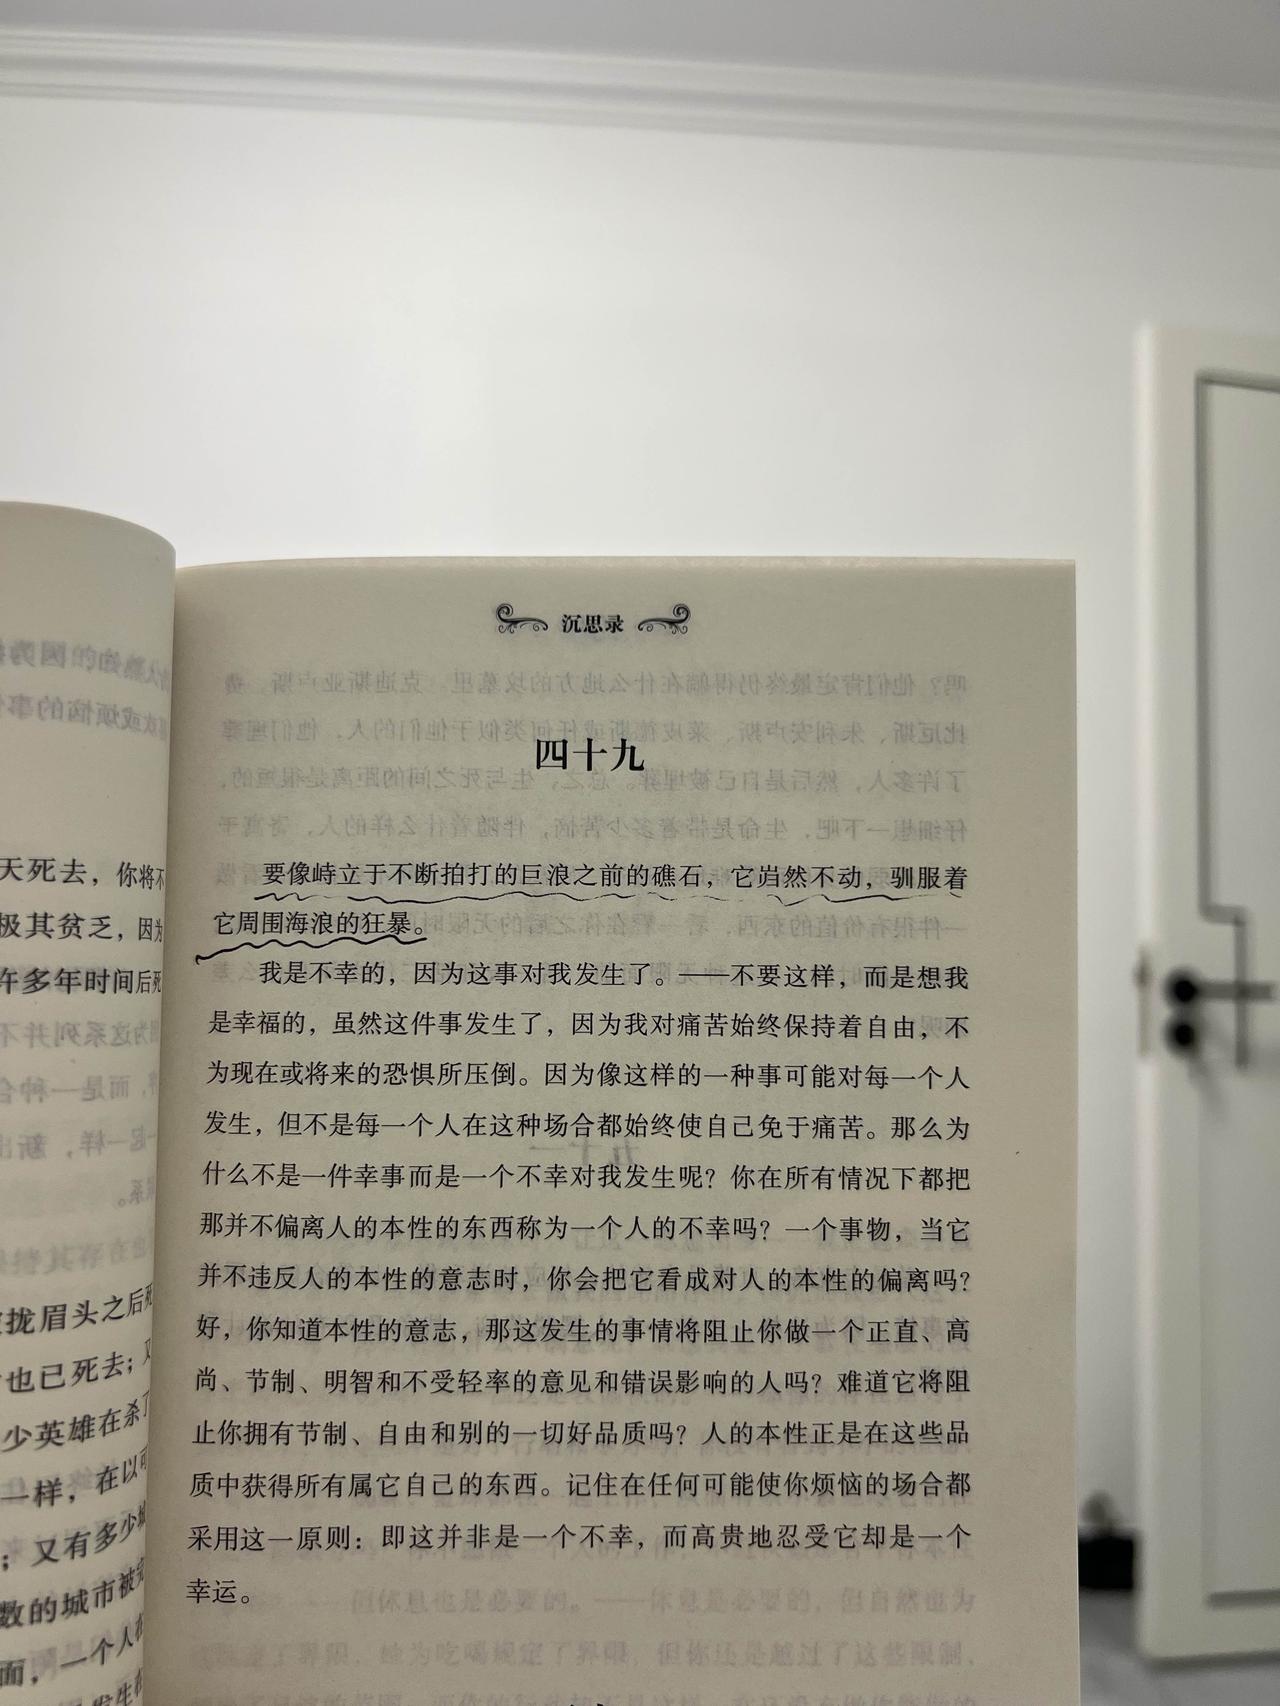 天死去，你将不
极其贫乏，因为
许多年时间后死
拢眉头之后死
也已死去；又
少英雄在杀了
一样，在以可
；又有多少城
数的城市被完
面，一个人在
沉思录
四十九
要像峙立于不断拍打的巨浪之前的礁石，它岿然不动，驯服着
它周围海浪的狂暴。
我是不幸的，因为这事对我发生了。——不要这样，而是想我
是幸福的，虽然这件事发生了，因为我对痛苦始终保持着自由，不
为现在或将来的恐惧所压倒。因为像这样的一种事可能对每一个人
发生，但不是每一个人在这种场合都始终使自己免于痛苦。那么为
什么不是一件幸事而是一个不幸对我发生呢？你在所有情况下都把
那并不偏离人的本性的东西称为一个人的不幸吗？一个事物，当它
并不违反人的本性的意志时，你会把它看成对人的本性的偏离吗？
好，你知道本性的意志，那这发生的事情将阻止你做一个正直、高
尚、节制、明智和不受轻率的意见和错误影响的人吗？难道它将阻
止你拥有节制、自由和别的一切好品质吗？人的本性正是在这些品
质中获得所有属它自己的东西。记住在任何可能使你烦恼的场合都
采用这一原则：即这并非是一个不幸，而高贵地忍受它却是一个
幸运。